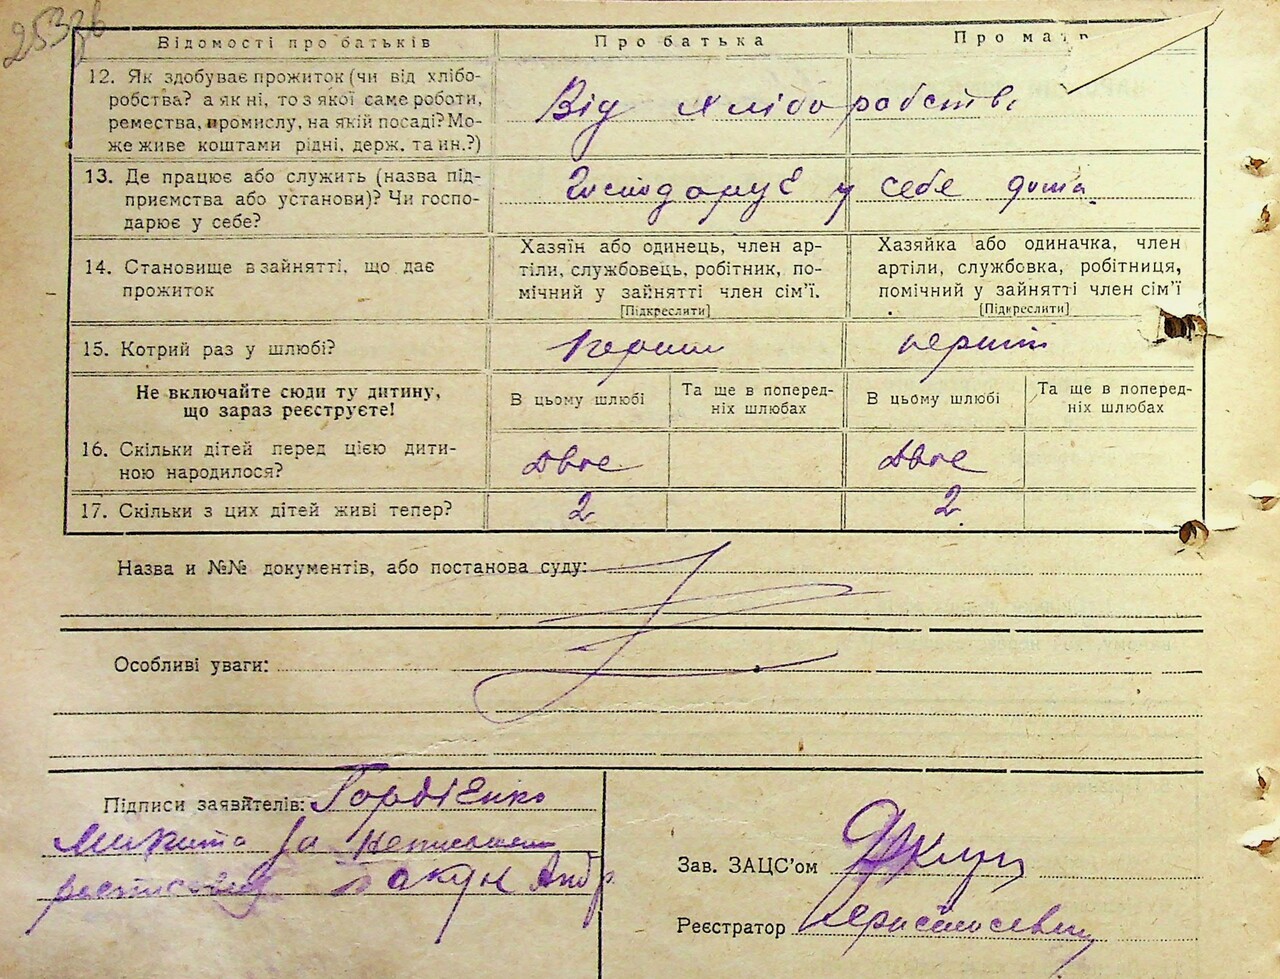 Відомості про батьків
Про батька
Про мат
12. Як здобуває прожиток (чи від хлібо-
робства? а як ні, то з якої саме роботи,
ремества, промислу, на якій посаді? Мо-
же живе коштами рідні, держ. та ин.?)
Від хліборобства
13. Де працює або служить (назва під-
приємства або установи)? Чи госпо-
дарює у себе?
Господарує у себе дома
14. Становище в зайнятті, що дає
прожиток
Хазяїн або одинець, член ар-
тіли, службовець, робітник, по-
мічний у зайнятті член сім’ї.
[Підкреслити]
Хазяйка або одиначка, член
артіли, службовка, робітниця,
помічний у зайнятті член сім’ї
[Підкреслити]
15. Котрий раз у шлюбі?
перший
перший
Не включайте сюди ту дитину,
що зараз реєструєте!
В цьому шлюбі
Та ще в поперед-
ніх шлюбах
В цьому шлюбі
Та ще в поперед-
ніх шлюбах
16. Скільки дітей перед цією дити-
ною народилося?
двоє
двоє
17. Скільки з цих дітей живі тепер?
2
2
Назва и №№ документів, або постанова суду:
Особливі уваги:
Підписи заявителів: Гордієнко
Микита за
Зав. ЗАЦС’ом
Реєстратор